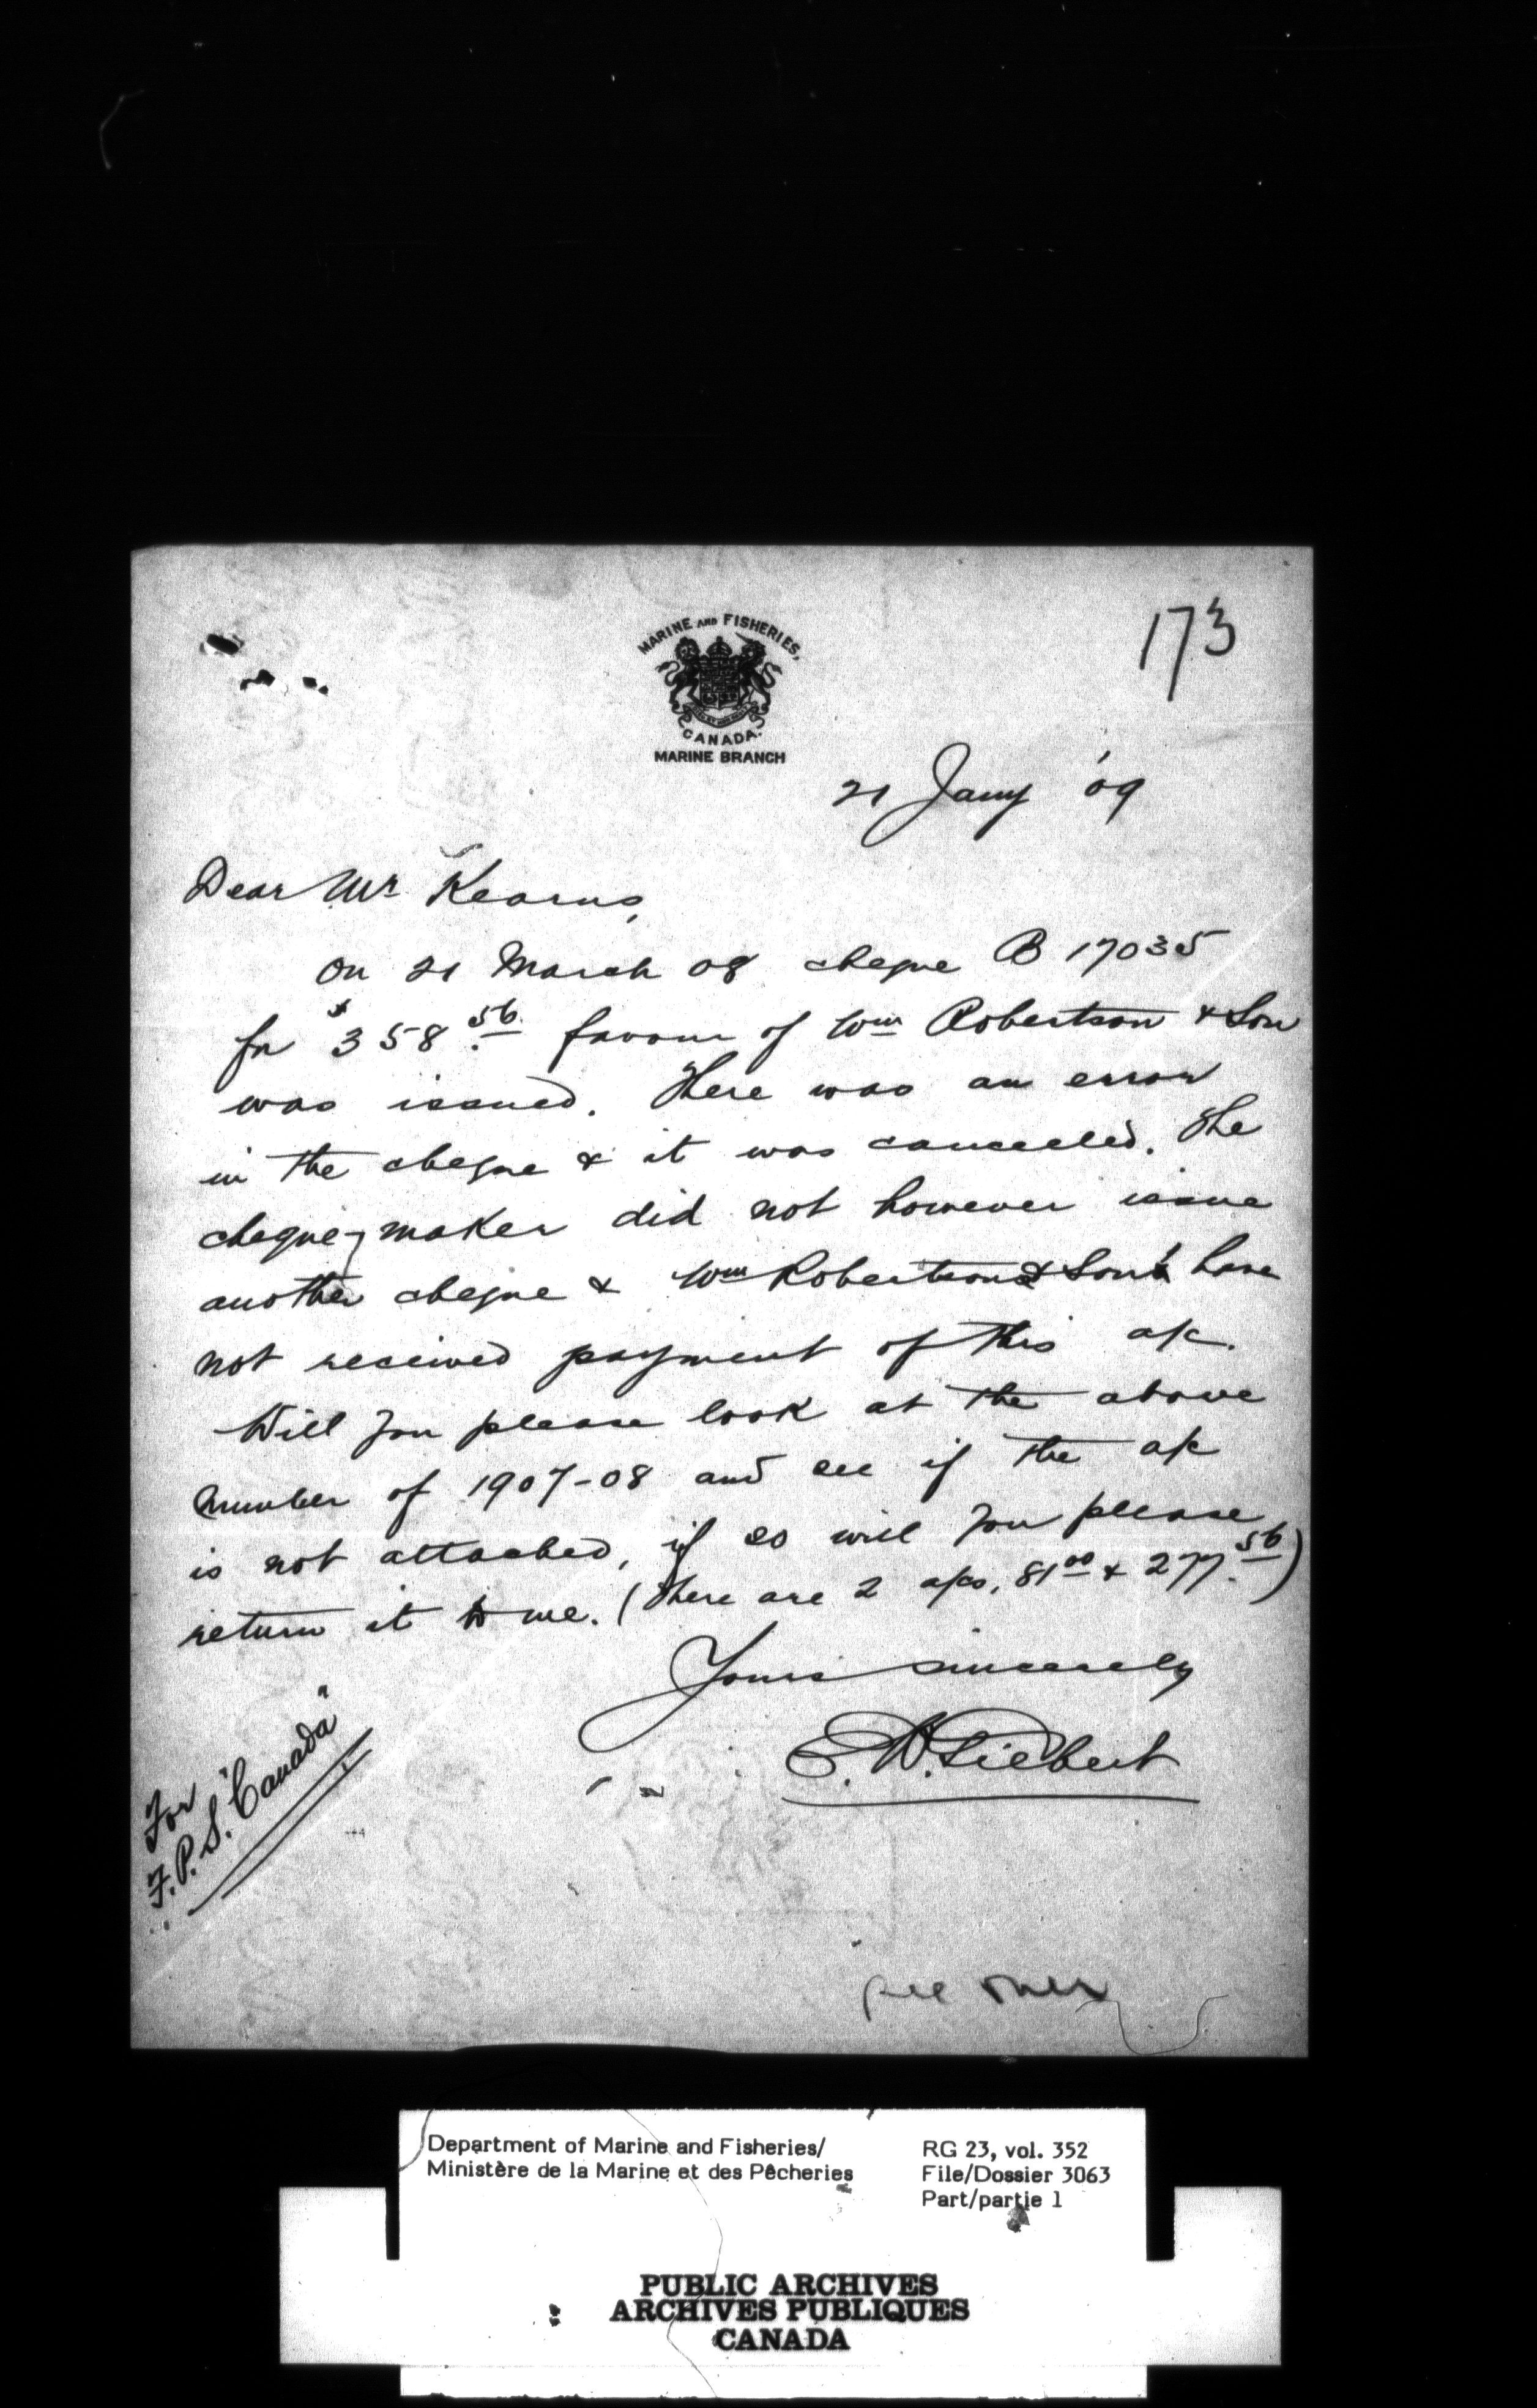 173
MARINE AND FISHERIES,
CANADA.
MARINE BRANCH
21 Jany '09
Dear Mr Kearns,
On 21 March 08 cheque B 17035
for $358.56 favour of Wm Robertson & Son
was issued. There was an error
in the cheque & it was cancelled. The
cheque-maker did not however issue
another cheque & Wm Robertson & Son have
not received payment of this a/c.
Will you please look at the above
number of 1907-08 and see if the a/c
is not attached, if so will you please
return it to me. (There are 2 a/cs, 81.00 & 277.56)
Yours sincerely
E. W. Siebert
For
F.P.S. "Canada"
see over
Department of Marine and Fisheries/
Ministère de la Marine et des Pêcheries
RG 23, vol. 352
File/Dossier 3063
Part/partie 1
PUBLIC ARCHIVES
ARCHIVES PUBLIQUES
CANADA